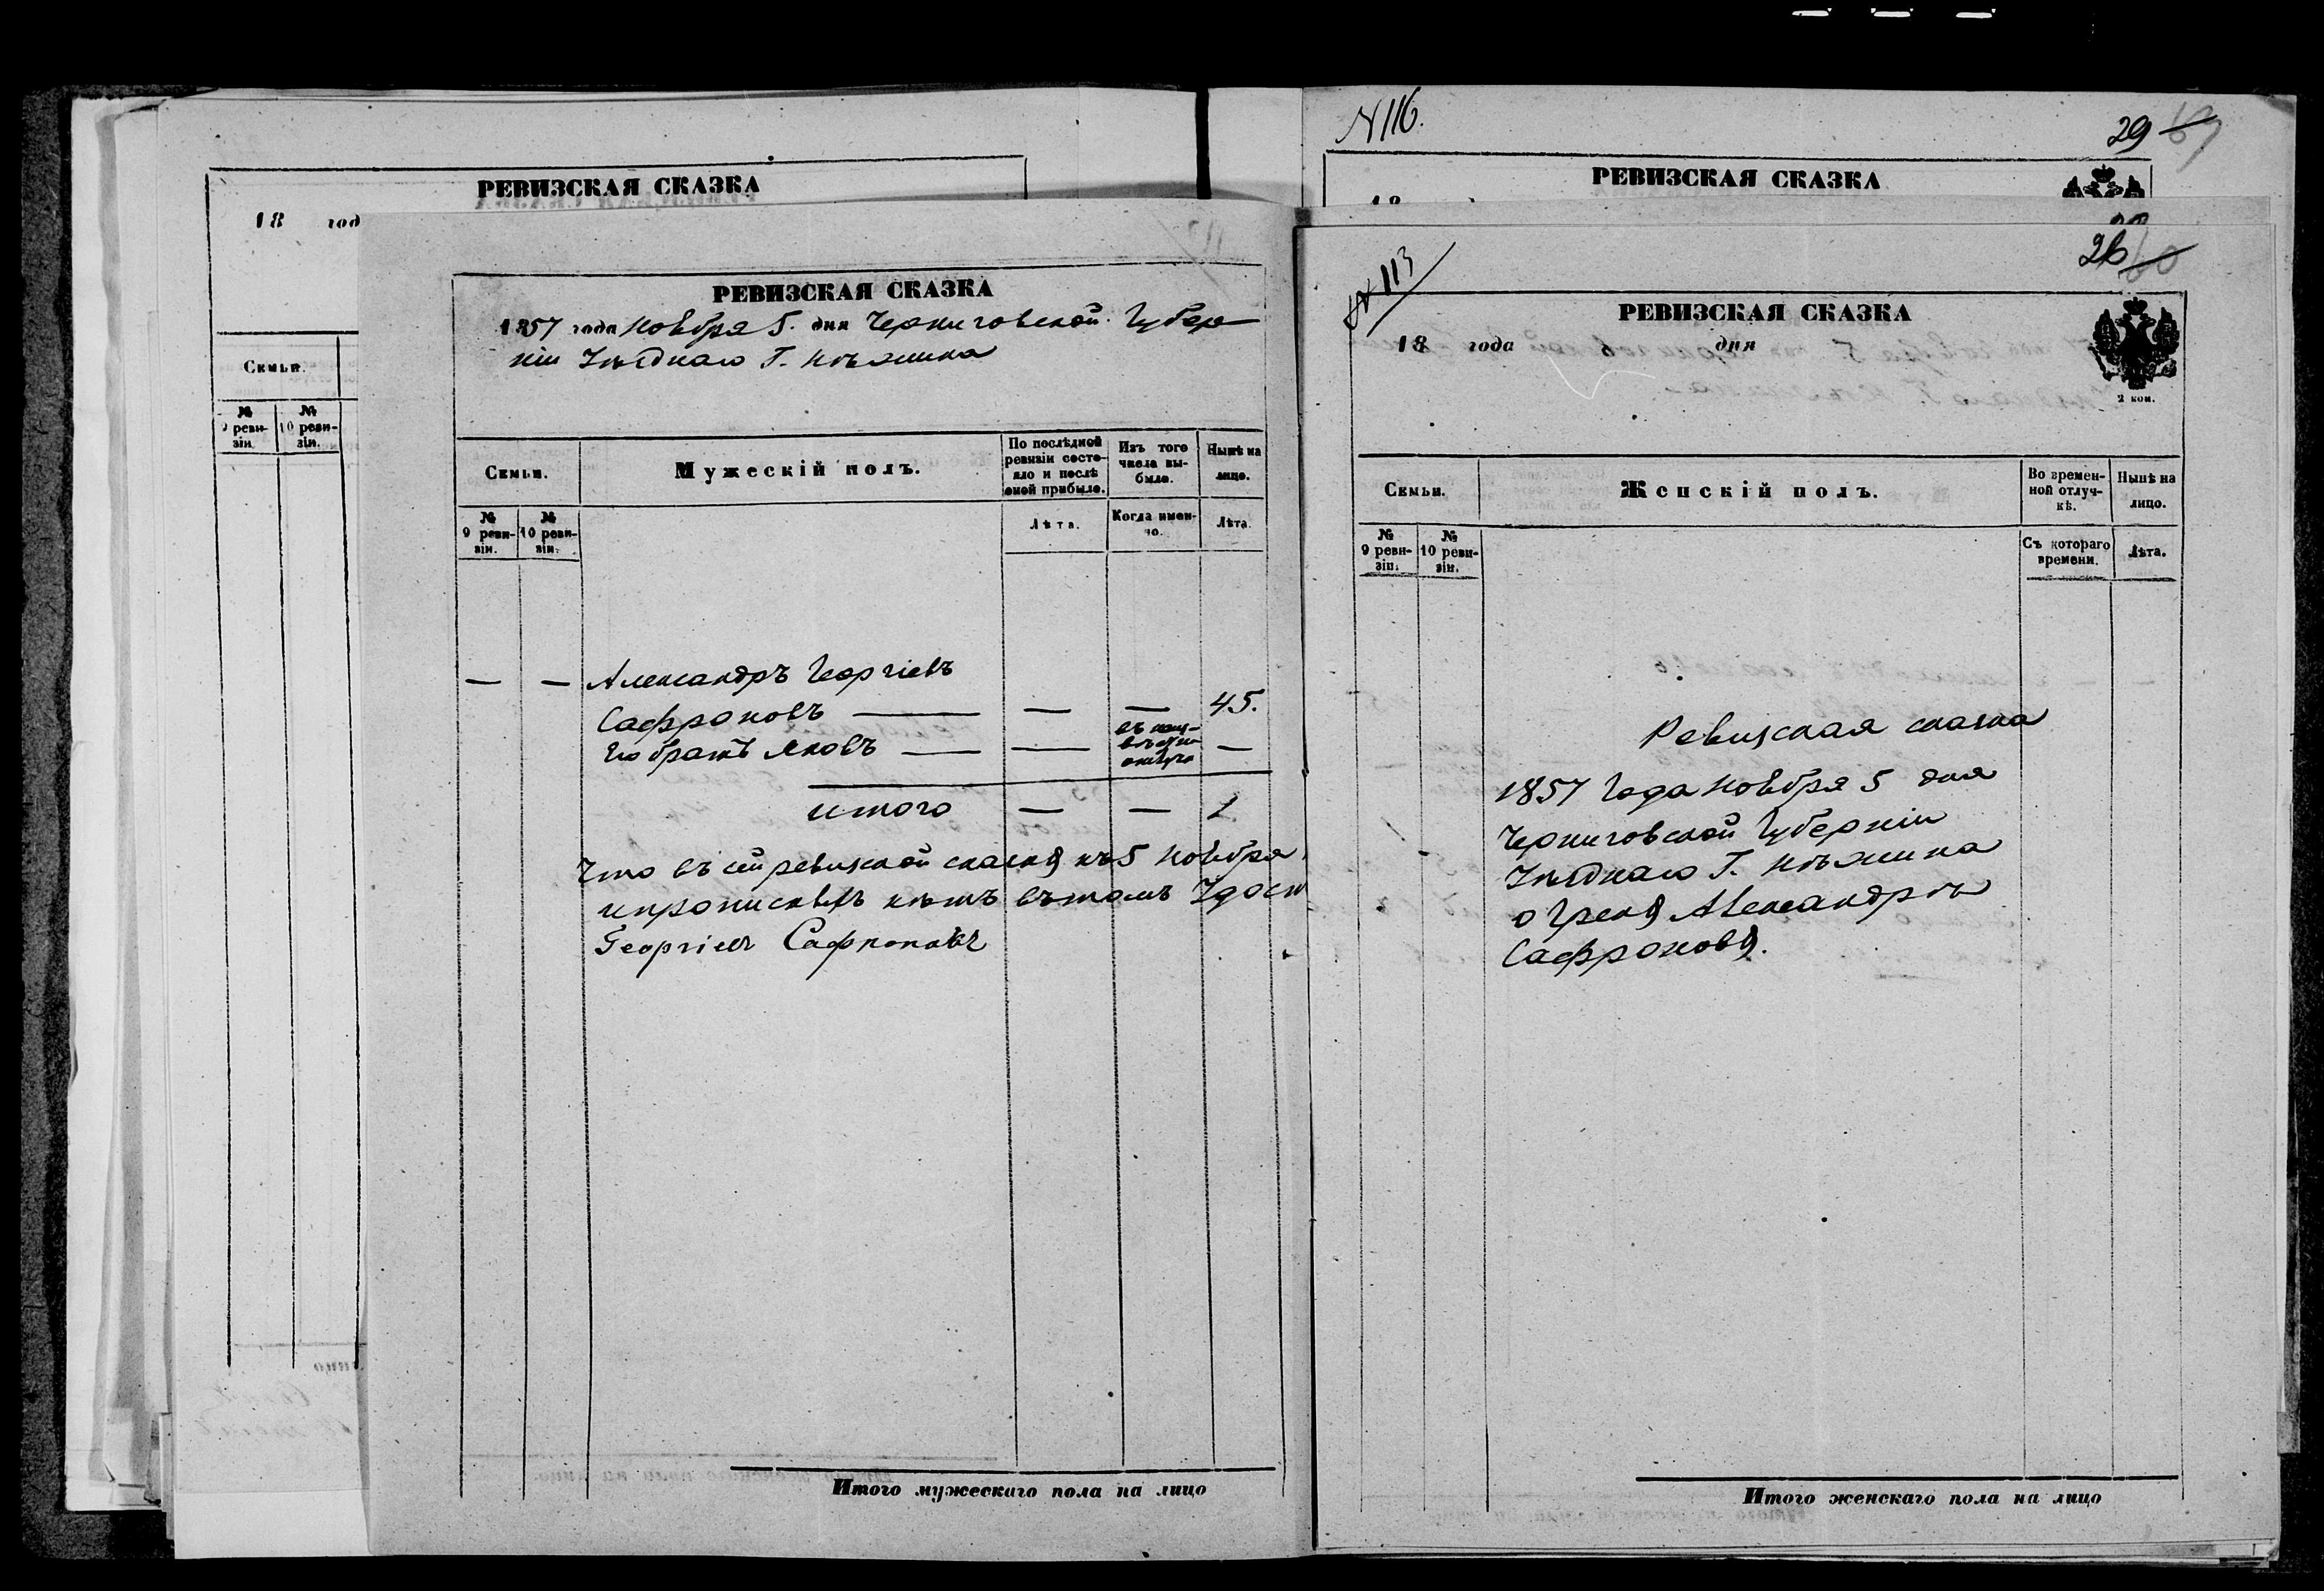 РЕВИЗСКАЯ СКАЗКА
18 год
Семьи.
№ 9 реви-зіи. № 10 реви-зіи.
РЕВИЗСКАЯ СКАЗКА
1857 года Ноября 5. дня Черниговской Губер
ніи Уѣзднаго Г. Нѣжина
Семьи. Мужескій полъ. По послѣдней ревизіи состо-яло и послѣ оной прибыло. Изъ того числа вы-было. Нынѣ на лицо.
№ 9 реви-зіи. № 10 реви-зіи. Лѣта. Когда имен-но. Лѣта.
— — Александръ Георгіевъ
Сафроновъ — — — 45.
Его братъ Яковъ — — —
итого — — 1
Что въ сей ревизской сказкѣ къ 5 ноября
и прописныхъ нѣтъ въ томъ
Георгіевъ Сафроновъ
Итого мужескаго пола на лицо
N 116.
29
РЕВИЗСКАЯ СКАЗКА
18
N 113
26
РЕВИЗСКАЯ СКАЗКА
18 года дня
2 коп.
Семьи. Женскій полъ. Во времен-ной отлуч-кѣ. Нынѣ на лицо.
№ 9 реви-зіи. № 10 реви-зіи. Съ котораго времени. Лѣта.
Ревизская сказка
1857 Года Ноября 5 дня
Черниговской Губерніи
Уѣзднаго Г. Нѣжина
о Грекѣ Александрѣ
Сафроновѣ.
Итого женскаго пола на лицо